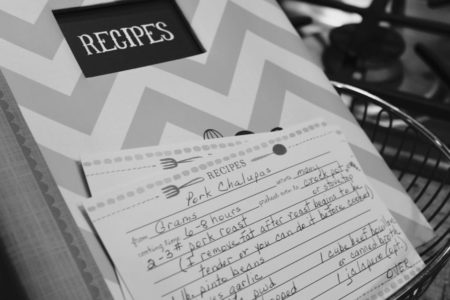 RECIPES
RECIPES
Pork Chalupas
from Grams serves many
cooking time 6-8 hours crock pot
or stove top
2-3# pork roast
(I remove fat after roast begins to be
tender or you can do it before cooked)
pinto beans
garlic 1 cube beef bouillon
pwd or canned broth
1 jalapeno (opt)
over